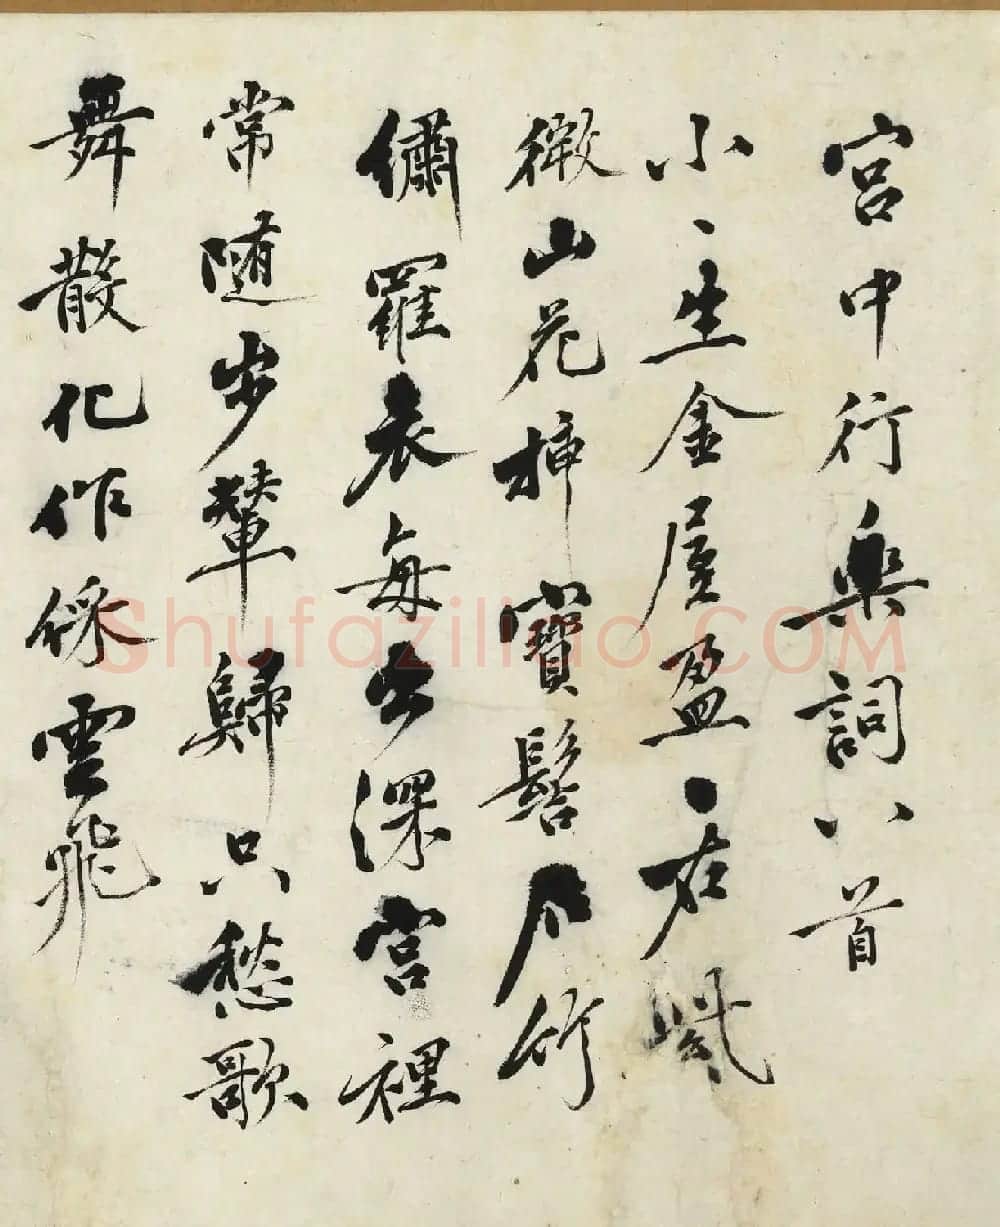 宮中行樂詞八首
小丶生金屋盈丶在紫
微山花插寶髻石竹
繡羅衣每出深宮裡
常隨步輦歸只愁歌
舞散化作綵雲飛
Shufaziliao.COM